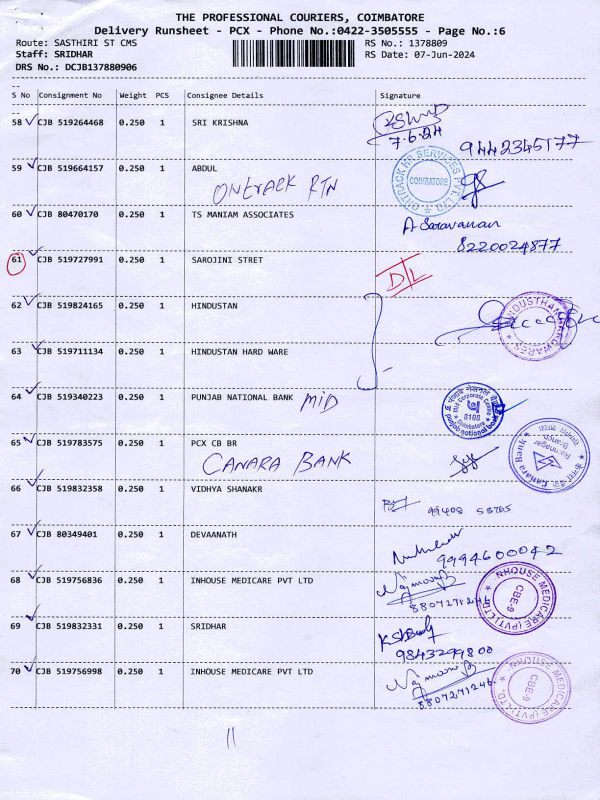 THE PROFESSIONAL COURIERS, COIMBATORE
Delivery Runsheet - PCX - Phone No.:0422-3505555 - Page No.:6
Route: SASTHIRI ST CMS RS No.: 1378809
Staff: SRIDHAR RS Date: 07-Jun-2024
DRS No.: DCJB137880906
S No Consignment No Weight PCS Consignee Details Signature
58 CJB 519264468 0.250 1 SRI KRISHNA
7.6.24 9442345177
59 CJB 519664157 0.250 1 ABDUL
ONTRACK RTN
ONTRACK HR SERVICES PVT. LTD. COIMBATORE
60 CJB 80470170 0.250 1 TS MANIAM ASSOCIATES
A Saravanan
8220024877
61 CJB 519727991 0.250 1 SAROJINI STRET
D/L
62 CJB 519824165 0.250 1 HINDUSTAN
HINDUSTHAN HARDWARES
63 CJB 519711134 0.250 1 HINDUSTAN HARD WARE
64 CJB 519340223 0.250 1 PUNJAB NATIONAL BANK MID
Mid Corporate Centre
8108
Coimbatore
punjab national bank
65 CJB 519783575 0.250 1 PCX CB BR
CANARA BANK
Canara Bank
66 CJB 519832358 0.250 1 VIDHYA SHANAKR
67 CJB 80349401 0.250 1 DEVAANATH
9994600042
68 CJB 519756836 0.250 1 INHOUSE MEDICARE PVT LTD
8807271246
INHOUSE MEDICARE (PVT) LTD. CBE-9
69 CJB 519832331 0.250 1 SRIDHAR
70 CJB 519756998 0.250 1 INHOUSE MEDICARE PVT LTD
8807271246
INHOUSE MEDICARE (PVT) LTD. CBE-9
11